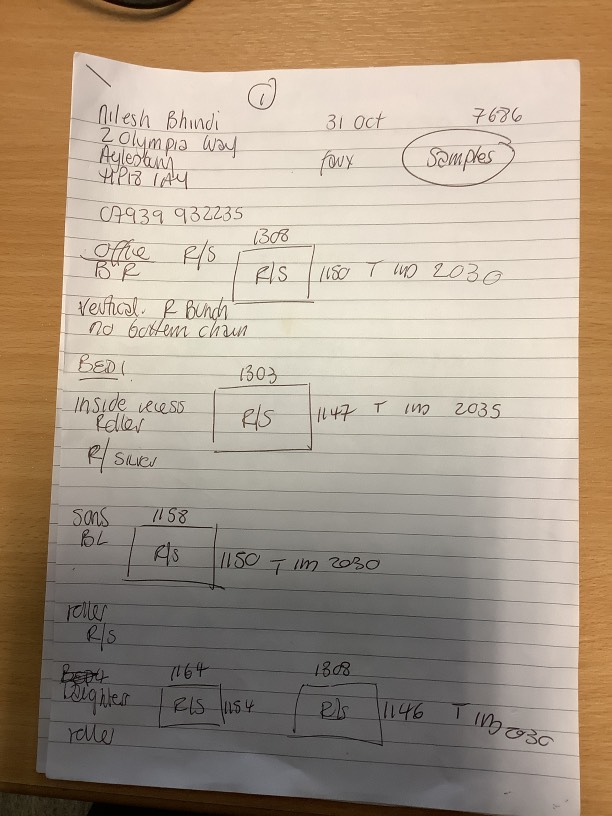 1
Nilesh Bhindi 31 Oct 7686
2 Olympia Way
Aylesbury faux Samples
HP18 1AY
07939 932235
1308
Office R/S R/S 1150 T 1m 2030
B R
Vertical. R Bunch
no bottem chain
BED 1
1303
inside recess R/S 1147 T 1m 2035
Roller
R/ SILVER
sons 1158
BL R/s 1150 T 1m 2030
roller
R/s
1164 1308
R/S 1154 R/s 1146 T 1m 2030
roller